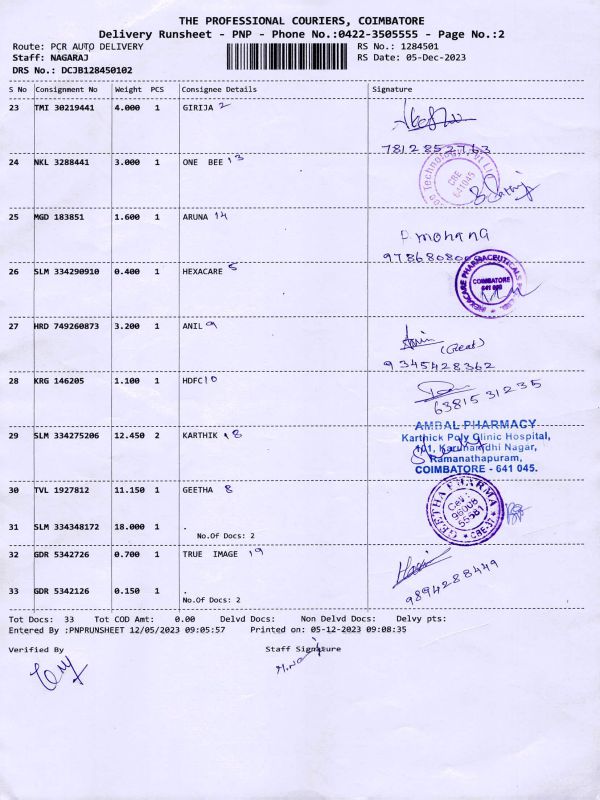 THE PROFESSIONAL COURIERS, COIMBATORE
Delivery Runsheet - PNP - Phone No.:0422-3505555 - Page No.:2
Route: PCR AUTO DELIVERY RS No.: 1284501
Staff: NAGARAJ RS Date: 05-Dec-2023
DRS No.: DCJB128450102
S No Consignment No Weight PCS Consignee Details Signature
23 TMI 30219441 4.000 1 GIRIJA 2
7812852763
24 NKL 3288441 3.000 1 ONE BEE 13
Technology Pvt
CBE
641045
25 MGD 183851 1.600 1 ARUNA 14
P. mohana
26 SLM 334290910 0.400 1 HEXACARE 5
HEXACARE PHARMACEUTICALS
COIMBATORE
27 HRD 749260873 3.200 1 ANIL 9
9345428362
28 KRG 146205 1.100 1 HDFC 10
6381531235
29 SLM 334275206 12.450 2 KARTHIK 8
AMBAL PHARMACY
Karthick Poly Clinic Hospital,
Karunanidhi Nagar,
Ramanathapuram,
COIMBATORE - 641 045.
30 TVL 1927812 11.150 1 GEETHA 8
GEETHA PHARMA
Cell :
CBE-37
31 SLM 334348172 18.000 1 .
No.Of Docs: 2
32 GDR 5342726 0.700 1 TRUE IMAGE 19
9894288449
33 GDR 5342126 0.150 1 .
No.Of Docs: 2
Tot Docs: 33 Tot COD Amt: 0.00 Delvd Docs: Non Delvd Docs: Delvy pts:
Entered By :PNPRUNSHEET 12/05/2023 09:05:57 Printed on: 05-12-2023 09:08:35
Verified By Staff Signature